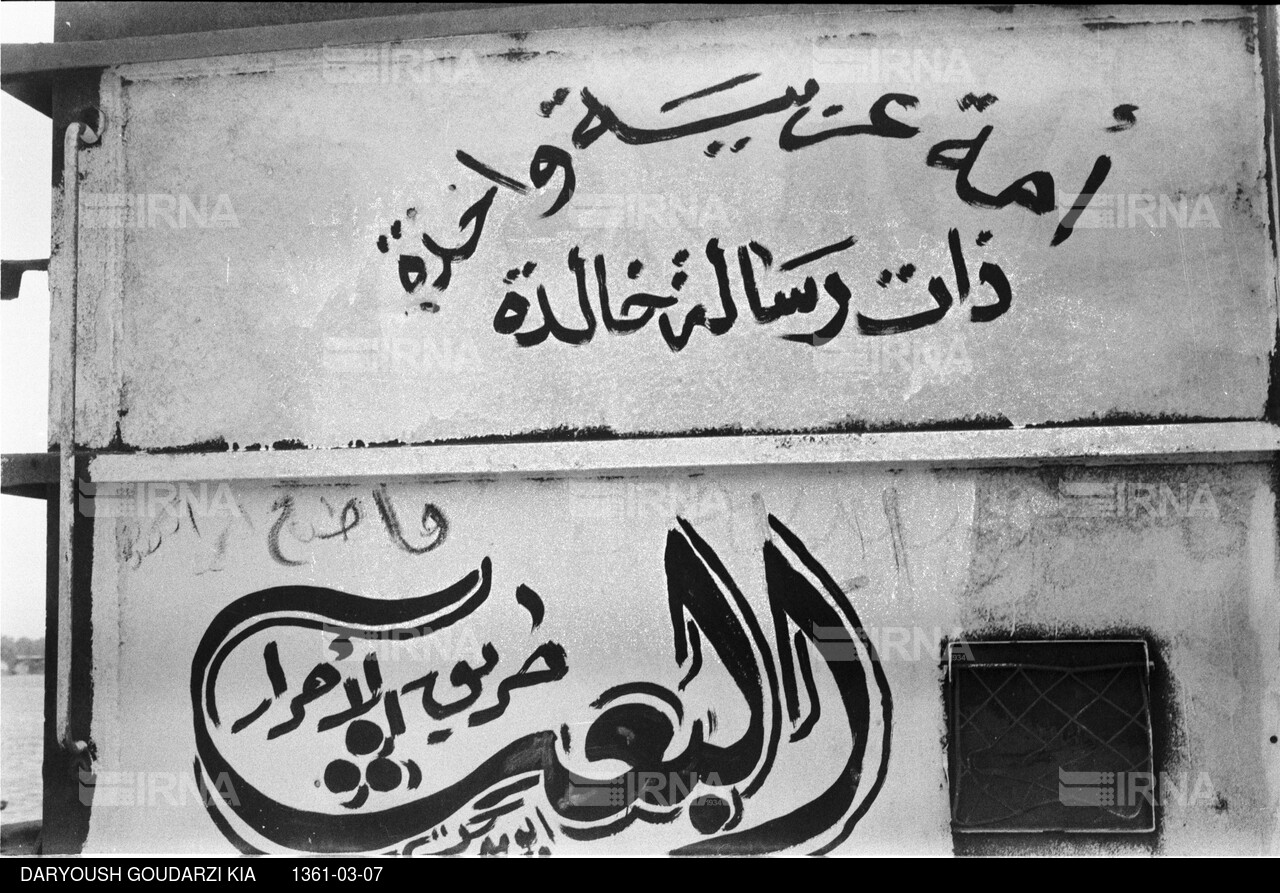 أمة عربية واحدة
ذات رسالة خالدة
البعث
طريق الأحرار
IRNA
DARYOUSH GOUDARZI KIA 1361-03-07